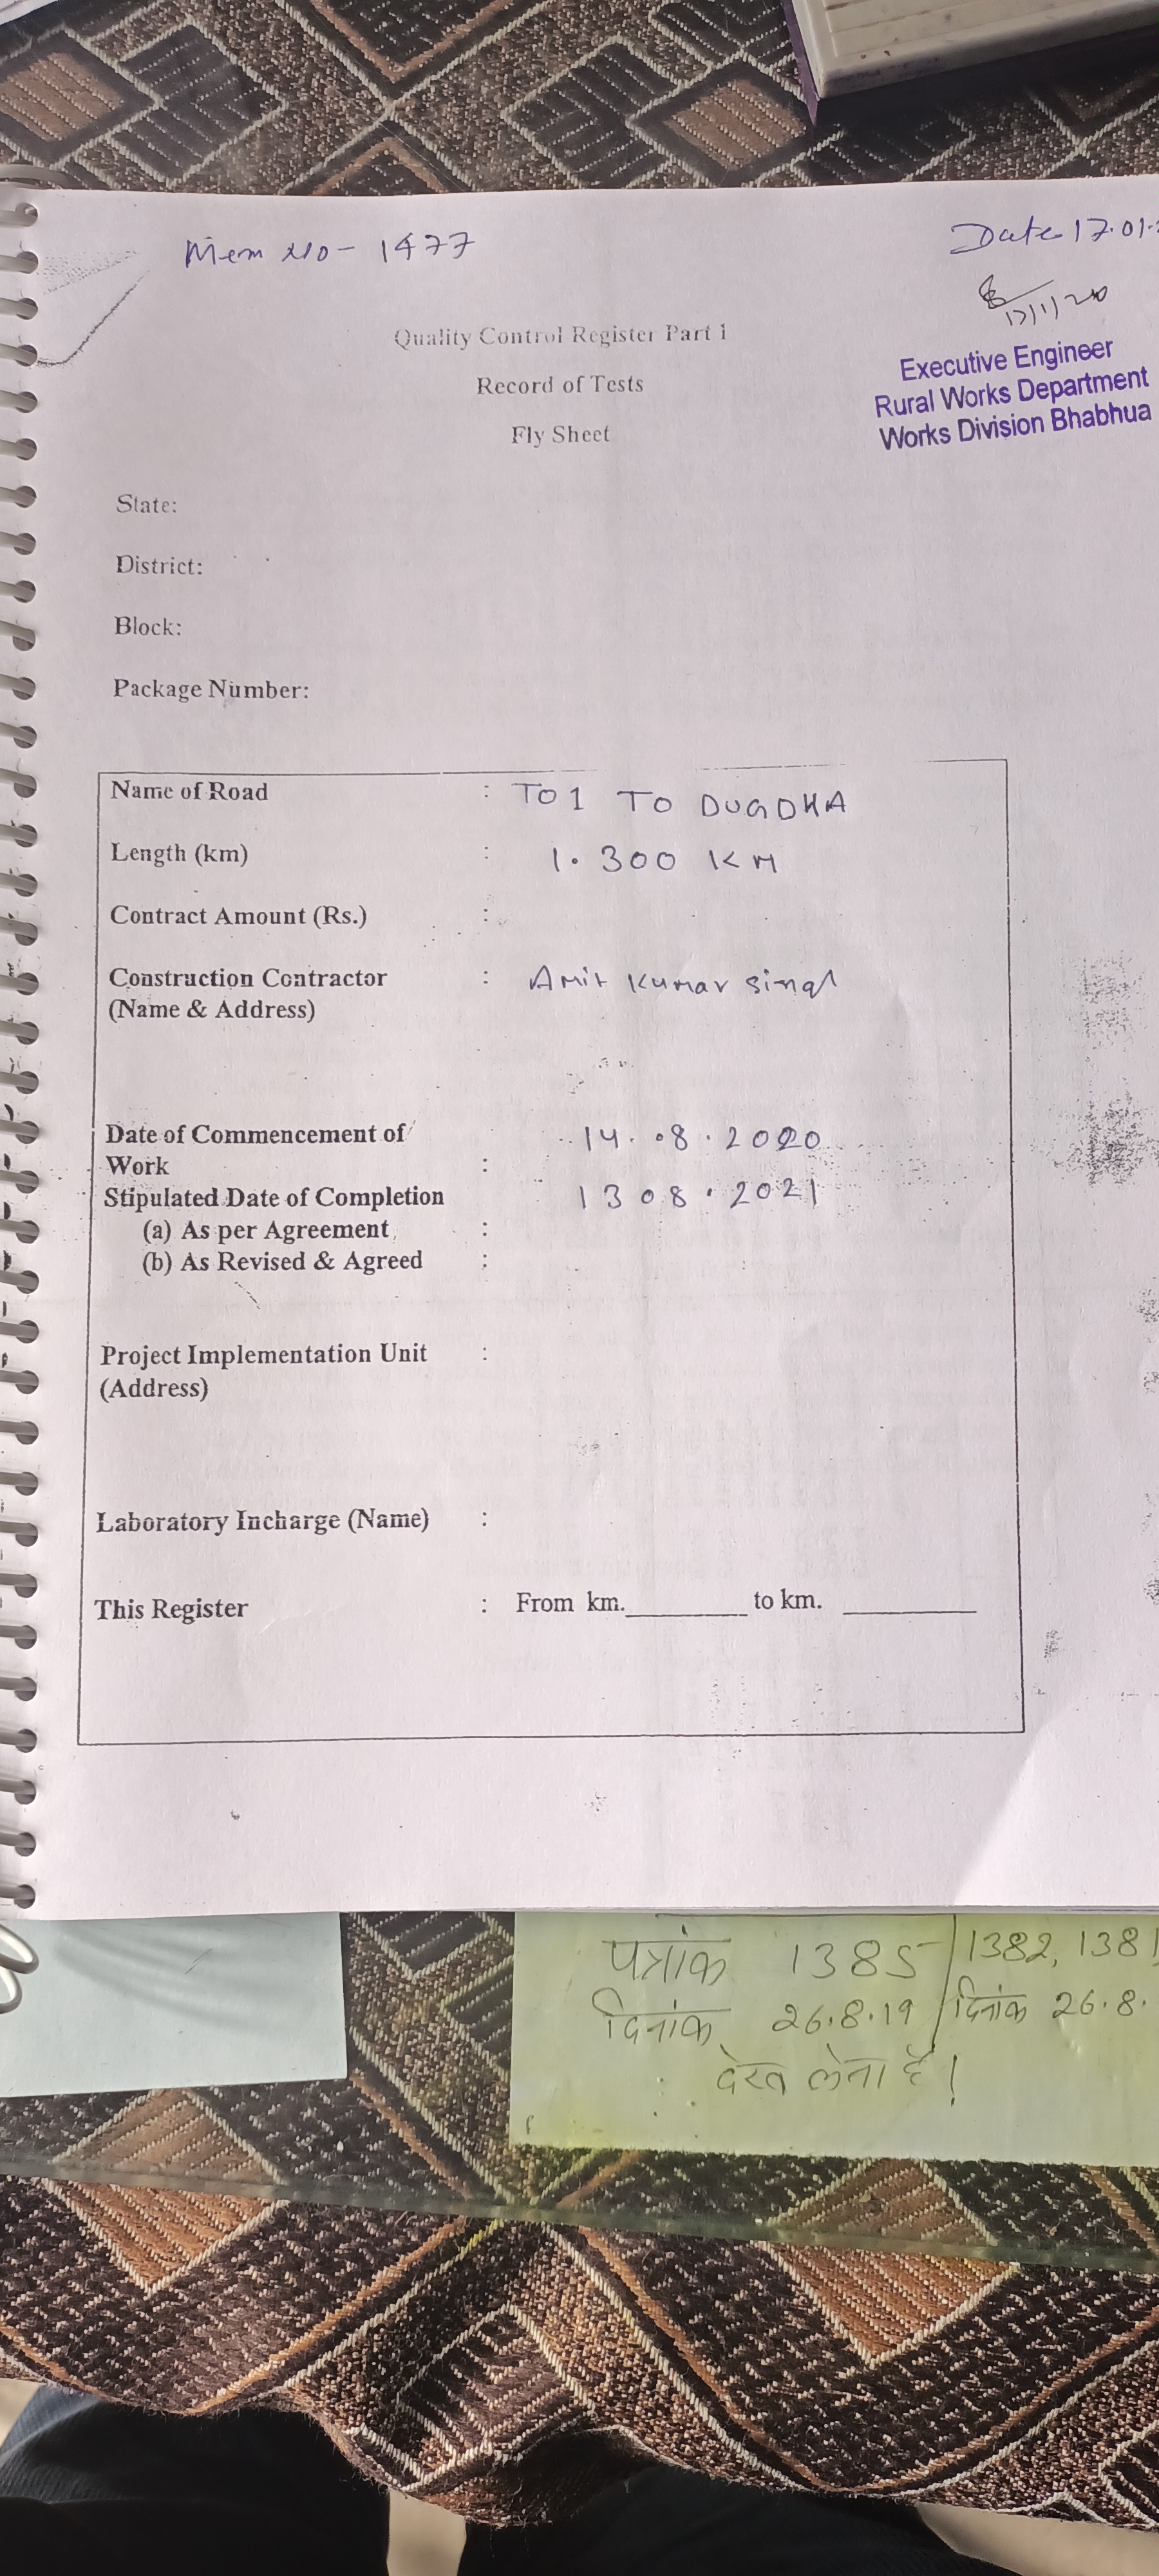 Mem No- 1477
Date 17.01.
17/1/20
Quality Control Register Part 1
Record of Tests
Fly Sheet
Executive Engineer
Rural Works Department
Works Division Bhabhua
State:
District:
Block:
Package Number:
Name of Road : TO1 TO DUGDHA
Length (km) : 1.300 KM
Contract Amount (Rs.) :
Construction Contractor : Amit Kumar singh
(Name & Address)
Date of Commencement of 14.08.2020
Work :
Stipulated Date of Completion 13 08.2021
(a) As per Agreement :
(b) As Revised & Agreed :
Project Implementation Unit :
(Address)
Laboratory Incharge (Name) :
This Register : From km. to km.
पत्रांक 1385 / 1382, 1381
दिनांक 26.8.19 / दिनांक 26.8.
देख लेना है।